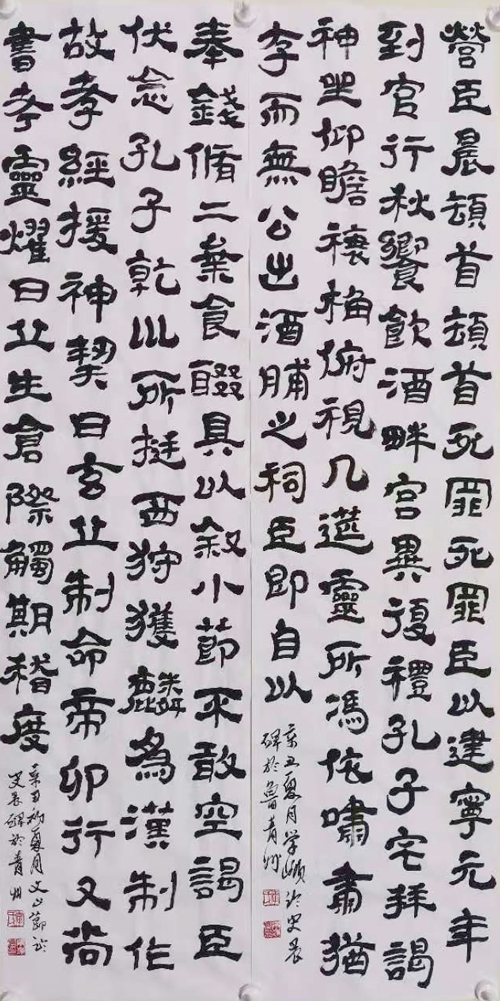 營臣晨頓首頓首死罪死罪臣以建寧元年
到官行秋饗飲酒畔宮畢復禮孔子宅拜謁
神坐仰瞻榱桷俯視几筵靈所馮依嘯肅猶
存而無公出酒脯之祠臣即自以
辛丑夏月史晨
碑於青州
奉錢脩二案食醊具以敘小節不敢空謁臣
伏念孔子乾川所挺西狩獲麟為漢制作
故孝經援神契曰玄丘制命帝卯行又尚
書考靈燿曰丘生倉際觸期稽度
辛丑初夏月文山節臨
史晨碑於青州